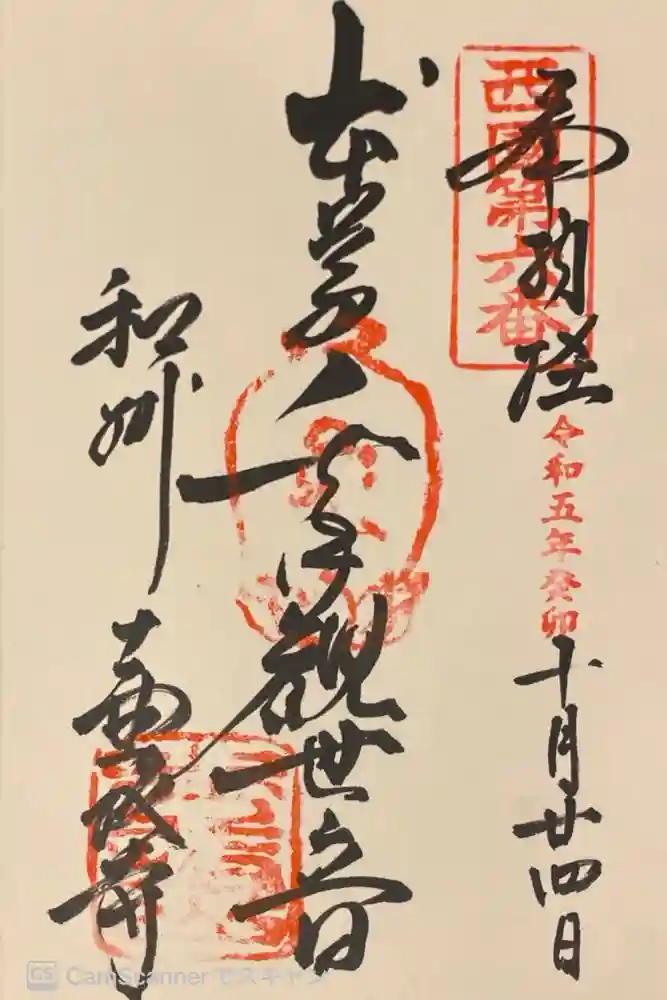 西國第六番
奉納経
令和五年癸卯
十月廿四日
本尊千手觀世音
和州
壷阪寺
CS CamScanner でスキャン